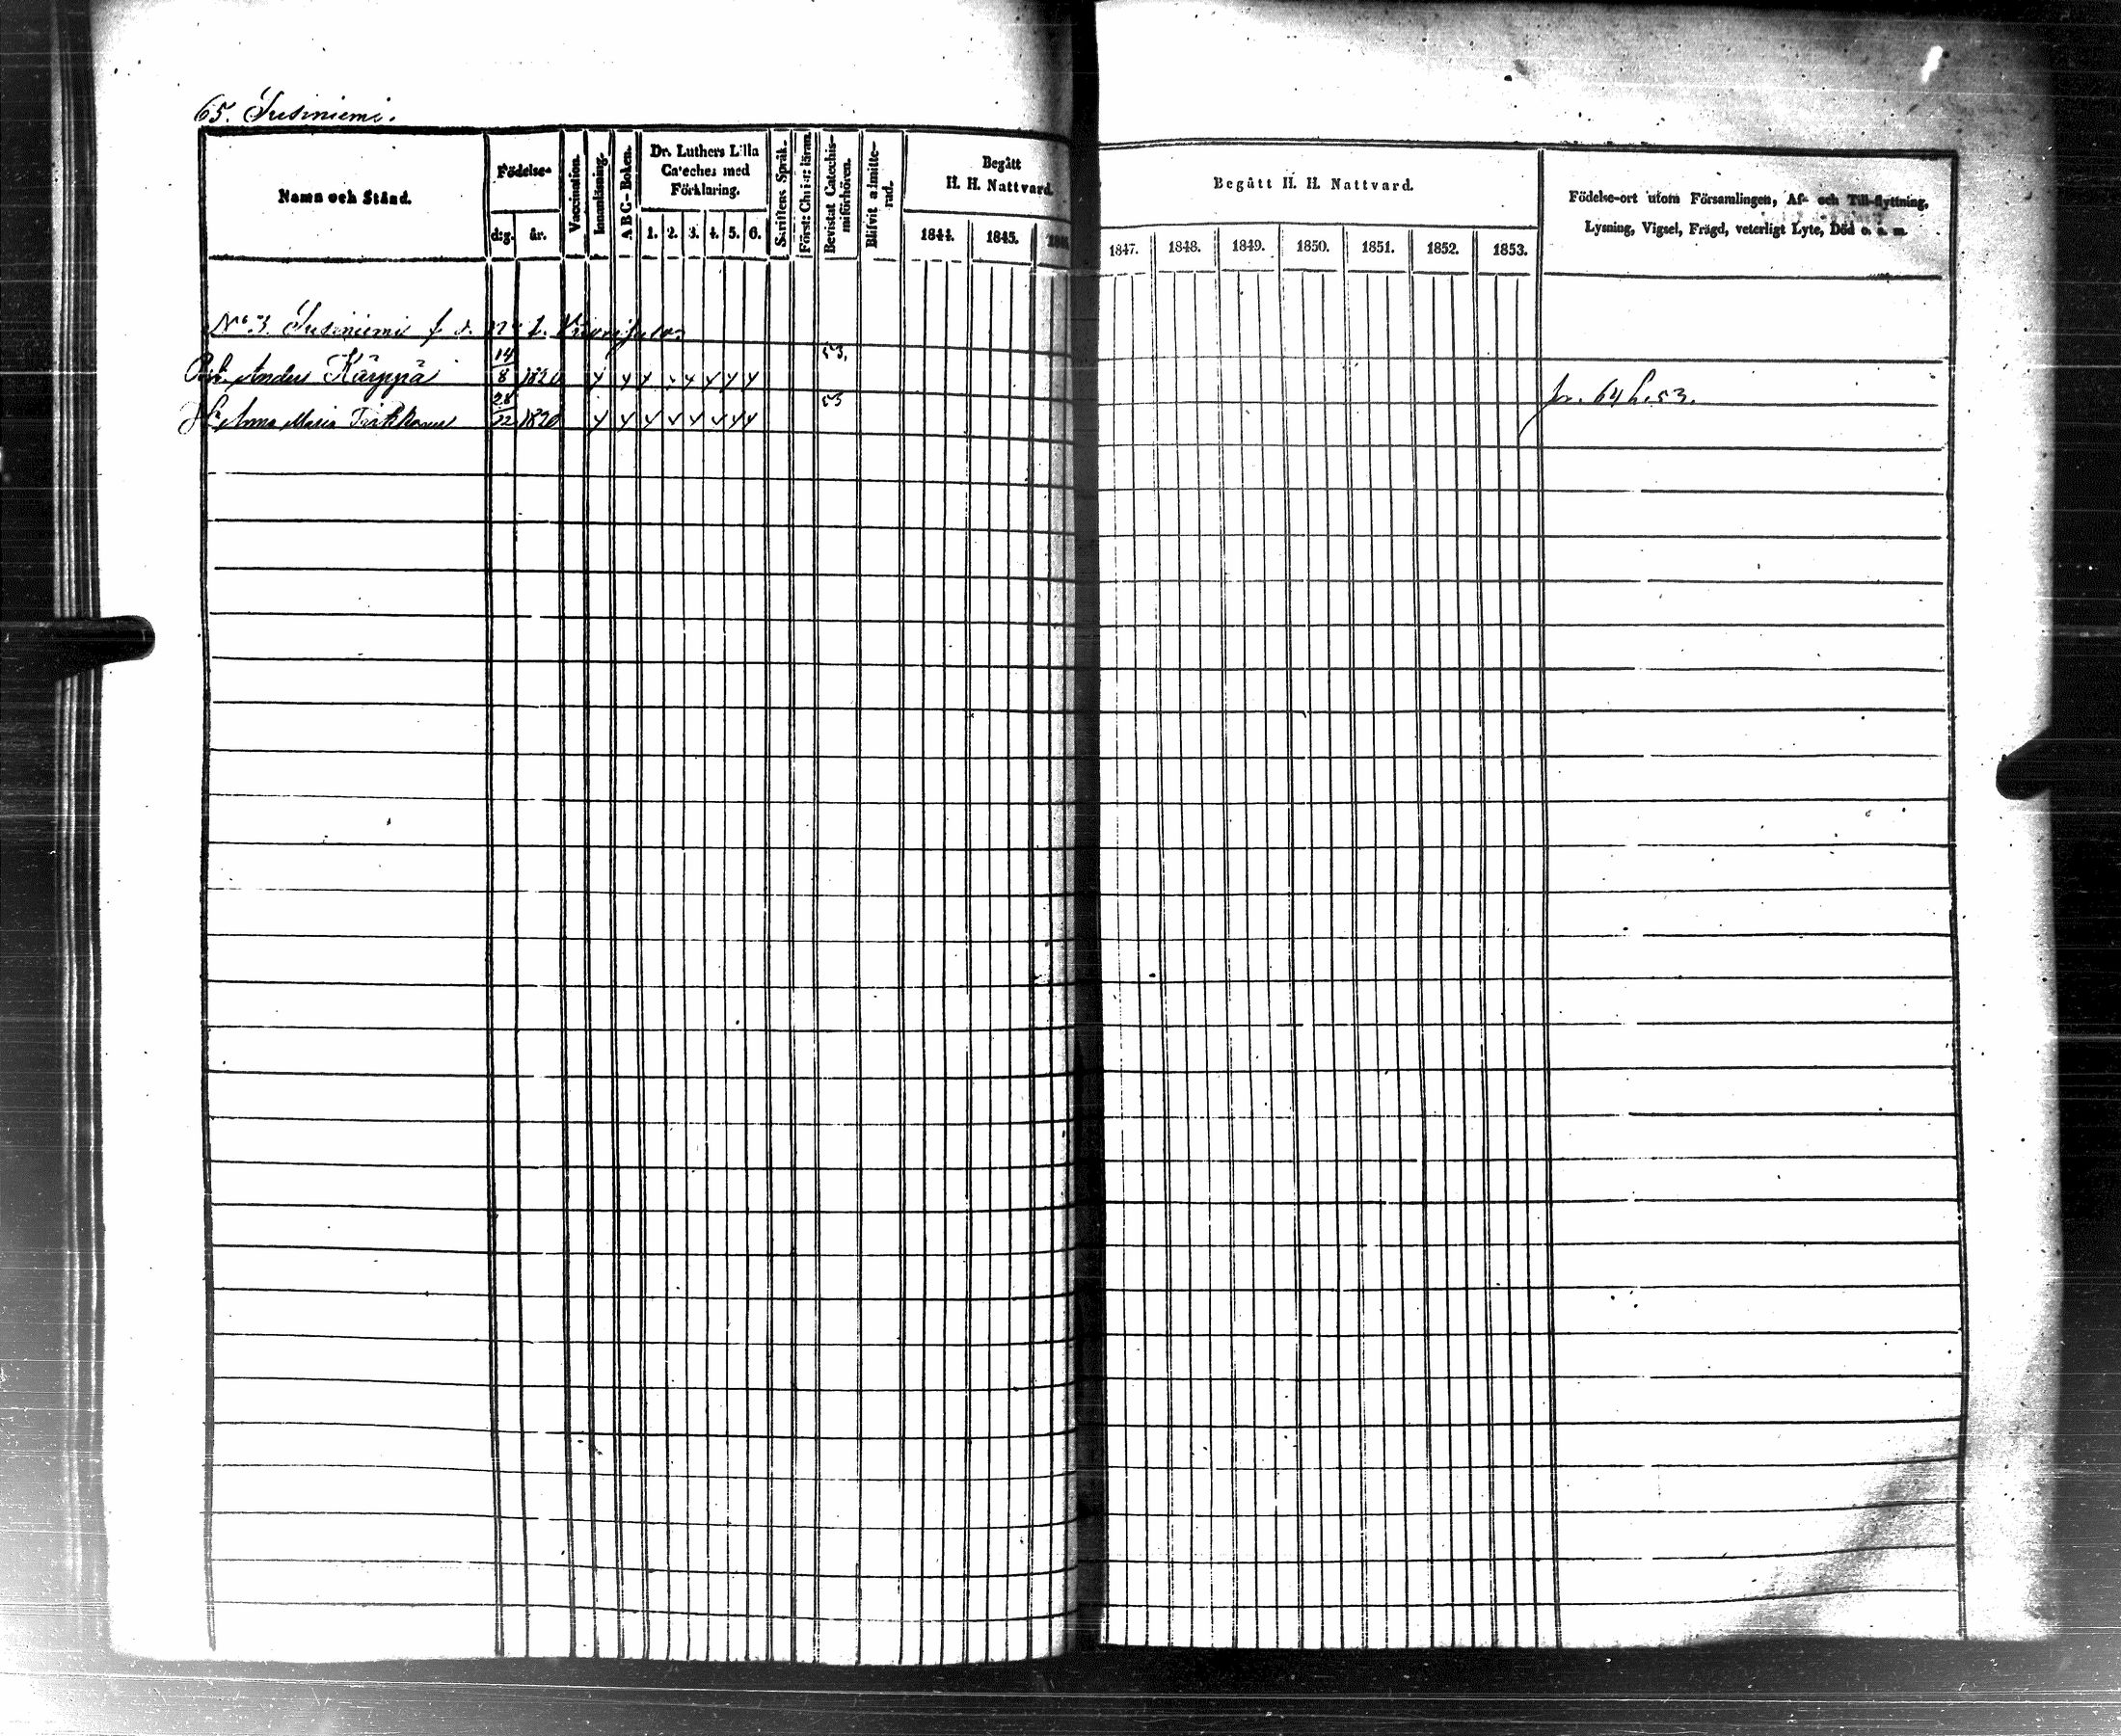 65. Susiniemi.
Namn och Stånd.
Födelse-
d:g. år.
Vaccination.
Innanläsning.
A B C-Boken.
Dr. Luthers Lilla Cateches med Förklaring.
1. 2. 3. 4. 5. 6.
Skriftens Språk.
Först: Christ: läran.
Bevistat Catechismiförhören.
Blifvit admitterad.
Begått
H. H. Nattvard.
1844. 1845. 1846.
Begått H. H. Nattvard.
1847. 1848. 1849. 1850. 1851. 1852. 1853.
Födelse-ort utom Församlingen, Af- och Till-flyttning,
Lysning, Vigsel, Frägd, veterligt Lyte, Död o. s. m.
No 3. Susiniemi f. d. No 1.
Anders Kärppä 14/8 1820 53.
fr. 64 h. 53.
Hu Anna Maria 1820 53